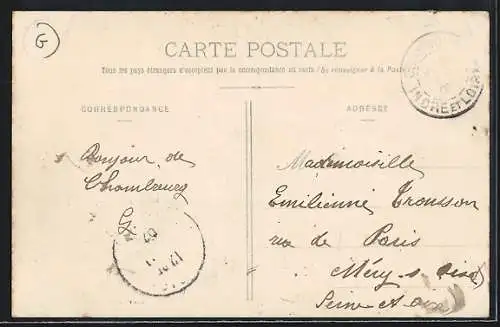 G
CARTE POSTALE
Tous les pays étrangers n'acceptent pas la correspondance au verso (Se renseigner à la Poste)
CORRESPONDANCE
ADRESSE
INDRE ET LOIRE
Bonjour de
Mademoiselle
Emilienne Trousson
rue de Paris
Méry-s-Oise
Seine-et-Oise